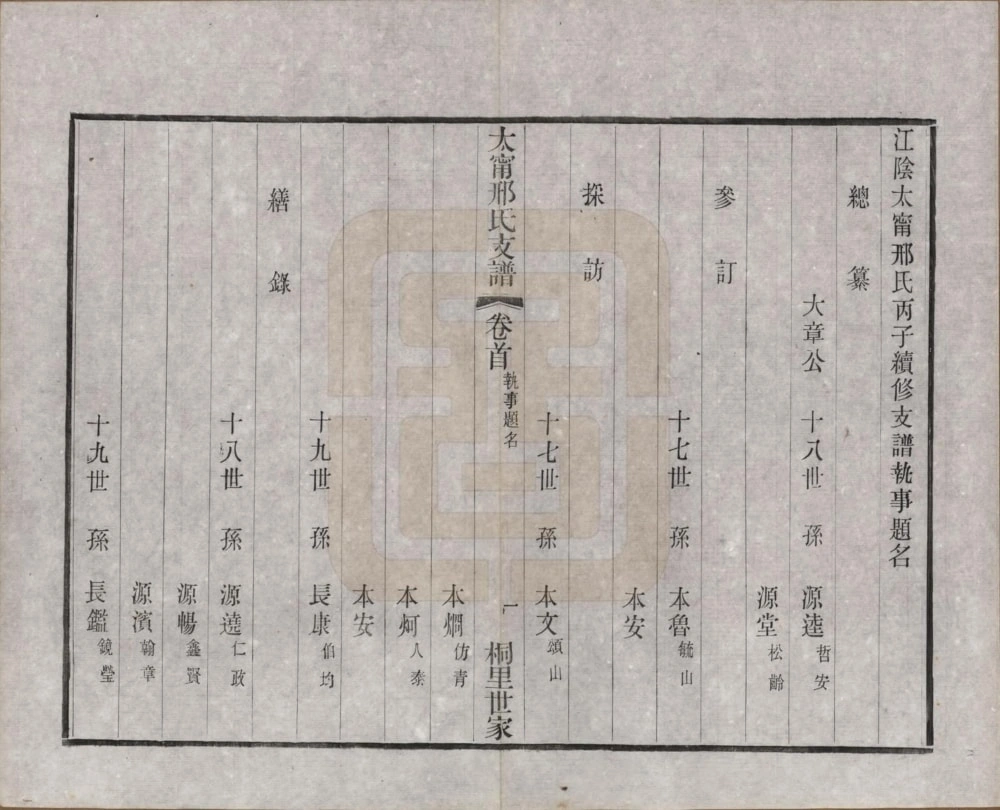 江陰太甯邢氏丙子續修支譜執事題名
總纂
大章公 十八世 孫 源逵 哲安
源堂 松齡
參訂
十七世 孫 本魯 毓山
本安
採訪
十七世 孫 本文 頌山
太甯邢氏支譜 卷首 執事題名 一 桐里世家
本燗 仿青
本炣 人泰
本安
十九世 孫 長康 伯均
繕錄
十八世 孫 源遶 仁政
源暢 鑫賢
源濱 翰章
十九世 孫 長鑑 鏡瑩